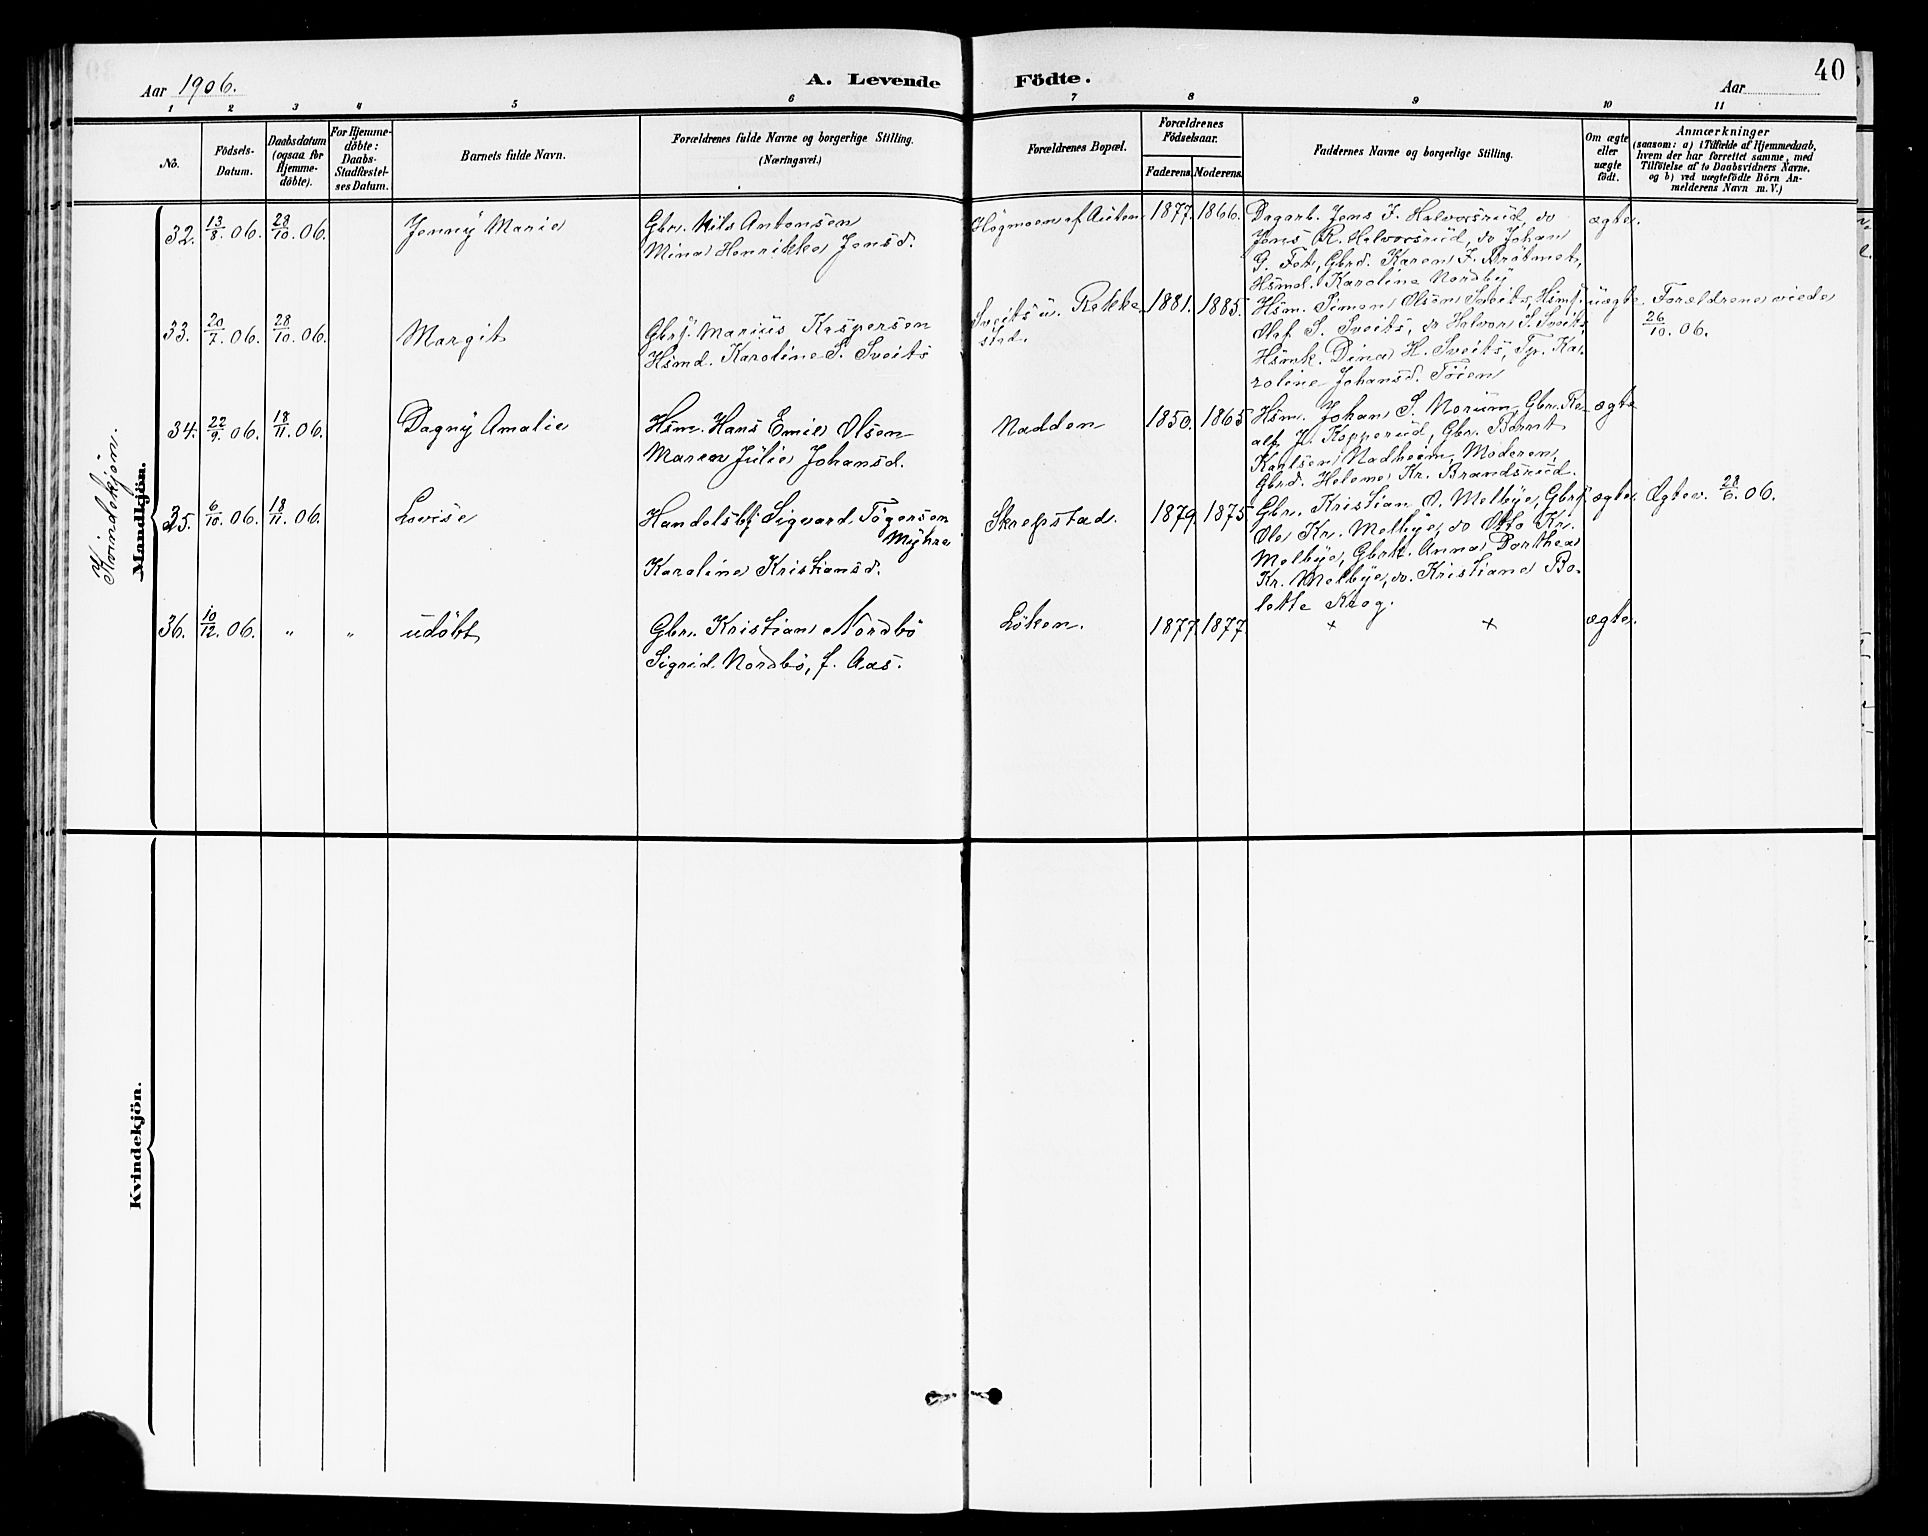 40
Aar 1906.
A. Levende Födte.
Aar
1 2 3 4 5 6 7 8 9 10 11
No.
Födsels-
Datum.
Daabsdatum
(ogsaa for
Hjemme-
döbte).
For Hjemme-
döbte:
Daabs-
Stadfæstel-
ses Datum.
Barnets fulde Navn.
Forældrenes fulde Navne og borgerlige Stilling.
(Næringsvei.)
Forældrenes Bopæl.
Forældrenes
Födselsaar.
Faderens. Moderens.
Faddernes Navne og borgerlige Stilling.
Om ægte
eller
uægte
födt.
Anmærkninger
(saasom: a) i Tilfælde af Hjemmedaab,
hvem der har forrettet samme, med
Tilföielse af to Daabsvidners Navne,
og b) ved uægtefödte Börn An-
melderens Navn m. V.)
Kvindekjøn.
Mandkjön.
32. 13/8. 06. 28/10. 06.
Jenny Marie
Gbr. Nils Antonsen
Mina Henrikke Jensd.
Högmoen af Auten
1877. 1866.
Dagarb. Jens J. Halvorsrud, do
Jens R. Halvorsrud, do Johan
G. Fet, Gbrd. Karen J. Brøtmet,
Hsmd. Karoline Nordby
ægte.
33. 20/7. 06. 28/10. 06.
Margit
Gbrs. Marius Kaspersen
Hsmd. Karoline S. Sveits
Sveits u. Rekke
stad.
1881. 1885.
Hsm. Simen Olsen Sveits, Hsms.
Olaf S. Sveits, do Halvor S. Sveits,
Hsmk. Dina H. Sveits, Tj. Ka-
roline Johansd. Tøien
uægte
Forældrene viede
26/10. 06.
34. 22/9. 06. 18/11. 06.
Dagny Amalie
Hsm. Hans Emil Olsen
Maren Julie Johansd.
Nadden
1850. 1865
Hsm. Johan S. Morum, Gbr. Ro-
alf H. Kopperud, Gbr. Bernt
Karlsen Nadheim, Moderen,
Gbrd. Helene Kr. Brandsrud.
ægte
35. 6/10. 06. 18/11. 06.
Lovise
Handelsbj. Sigvard Tøgersen
Myhre
Karoline Kristiansd.
Skrepstad.
1879. 1875
Gbr. Kristian O. Melbye, Gbrs.
Ole Kr. Melbye, do Otto Kr.
Melbye, Gbrk. Anna Dorthea
Kr. Melbye, do. Kristiane Bo-
lette Krog.
ægte.
Ægtev. 28/6. 06.
36. 10/12. 06. " "
udöbt
Gbr. Kristian Nordbö
Sigrid Nordbö, f. Aas.
Löken.
1877. 1877.
× ×
ægte.
Kvindekjön.